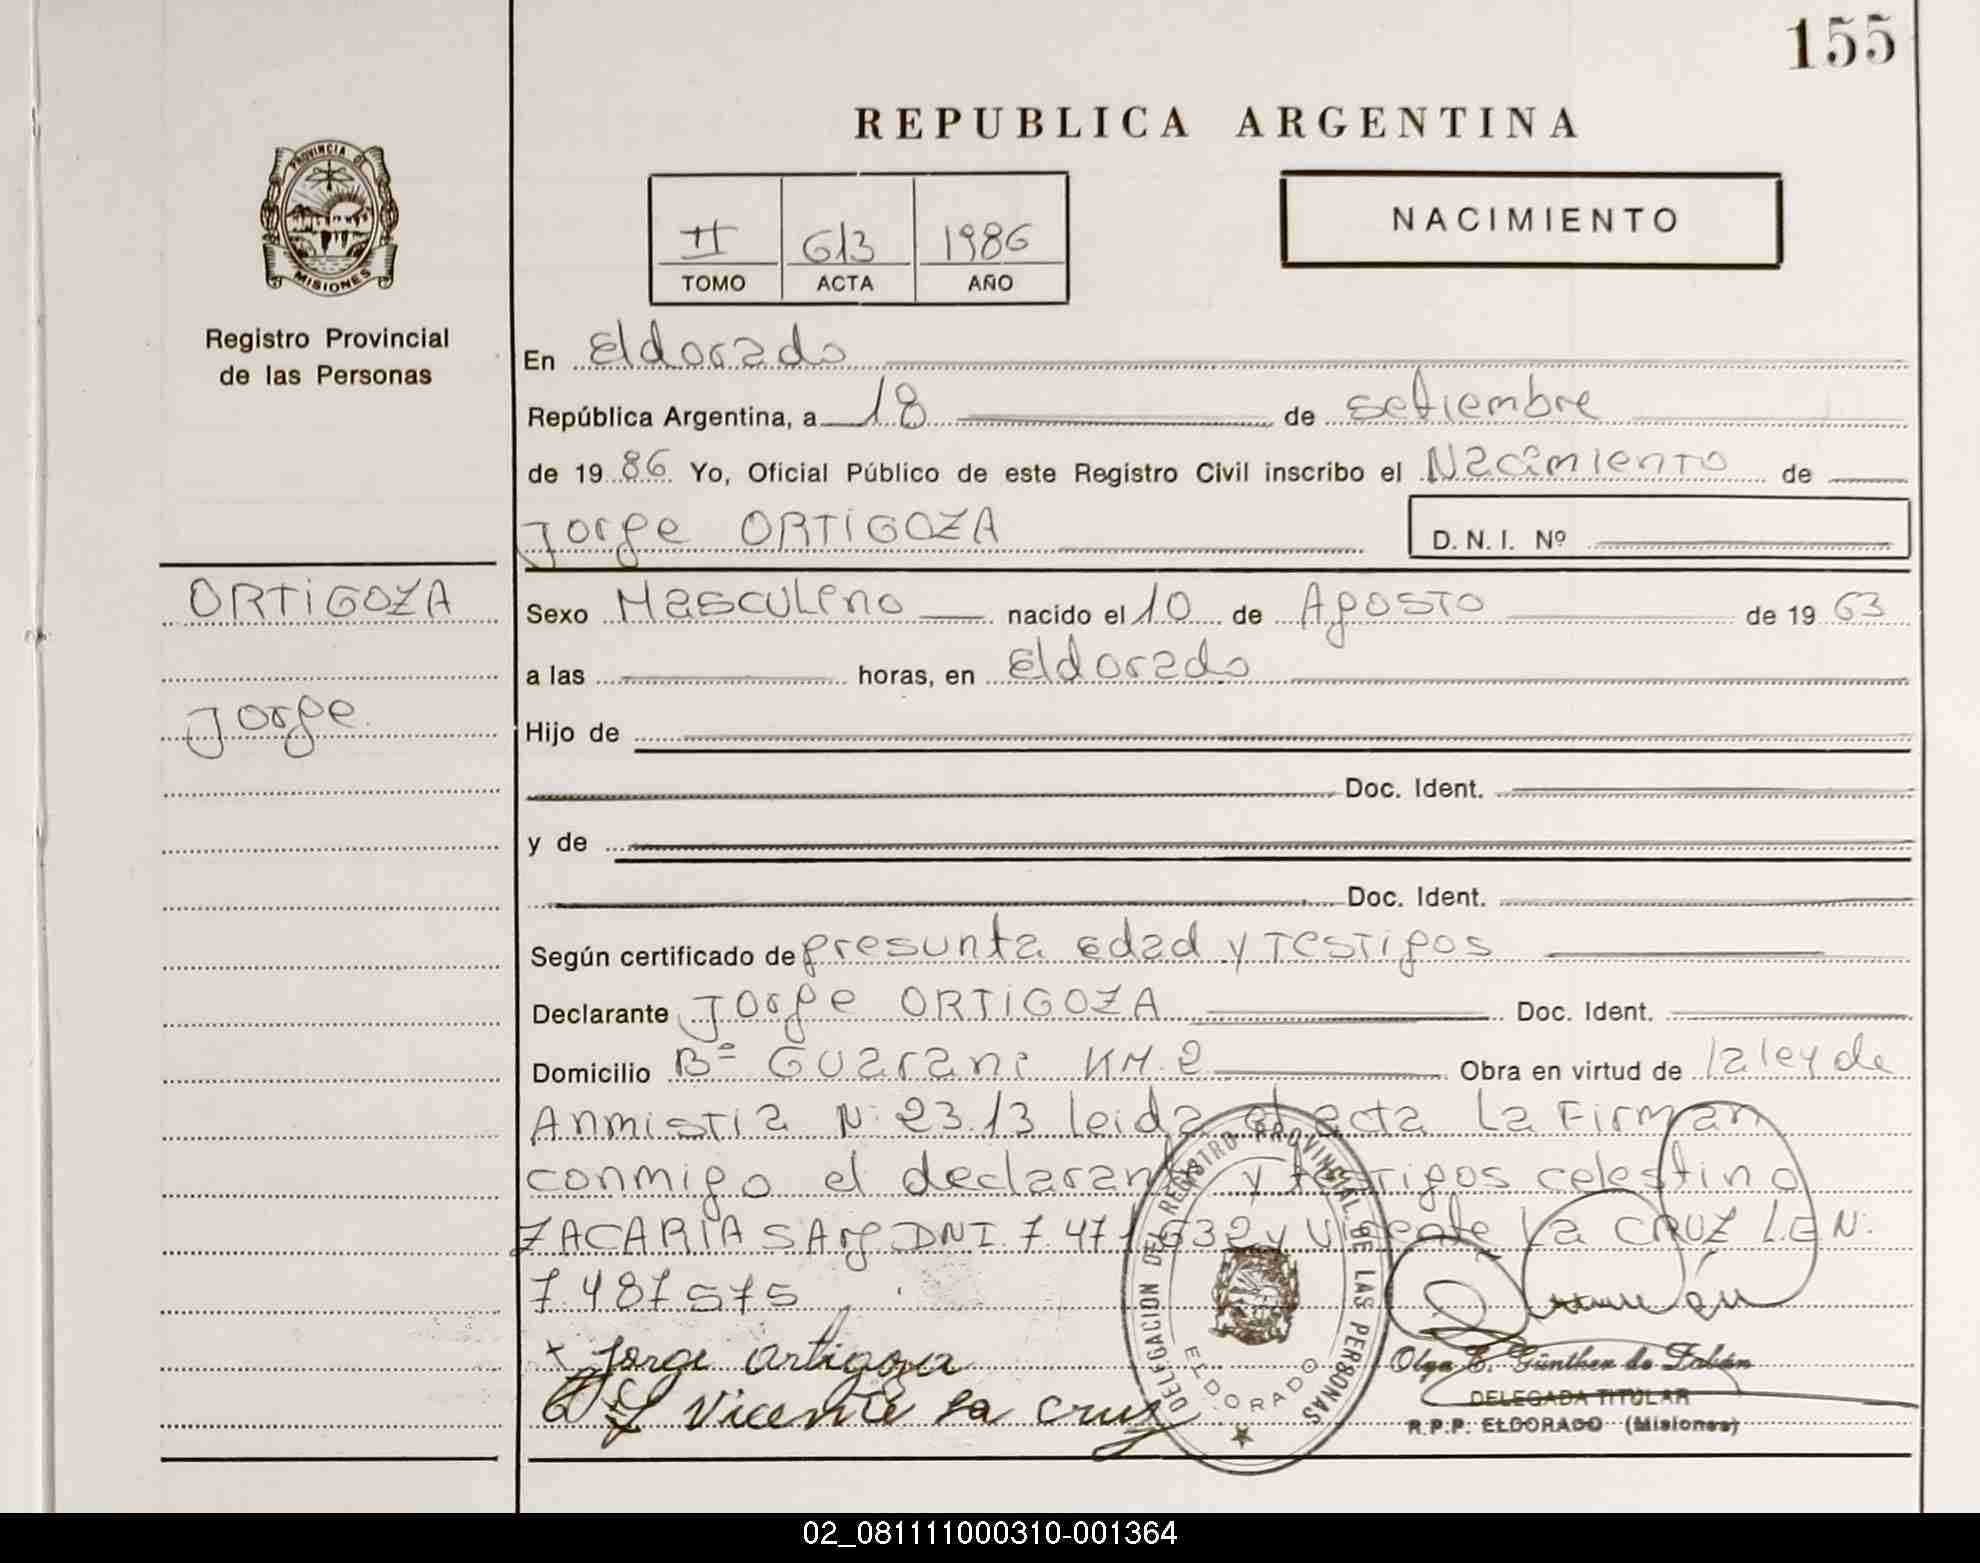 155
REPUBLICA ARGENTINA
PROVINCIA DE
MISIONES
Registro Provincial
de las Personas
II 613 1986
TOMO ACTA AÑO
NACIMIENTO
En Eldorado
República Argentina, a 18 de setiembre
de 19 86 Yo, Oficial Público de este Registro Civil inscribo el Nacimiento de
Jorge ORTIGOZA D.N.I. Nº
ORTIGOZA
Jorge
Sexo Masculino nacido el 10 de Agosto de 19 63
a las horas, en Eldorado
Hijo de
Doc. Ident.
y de
Doc. Ident.
Según certificado de presunta edad y Testigos
Declarante Jorge ORTIGOZA Doc. Ident.
Domicilio Bº Guarani KM. 2 Obra en virtud de la ley de
Anmistia N: 23.13 leida el acta La Firman
conmigo el declarante y testigos celestino
ZACARIA SArg DNI 7.471.632 y Vicente La CRUZ L.E N:
7.487.575
x Jorge Ortigoza
Vicente la cruz
DELEGACION DEL REGISTRO PROVINCIAL DE LAS PERSONAS
ELDORADO
Olga E. Günther de Fabián
DELEGADA TITULAR
R.P.P. ELDORADO (Misiones)
02_081111000310-001364